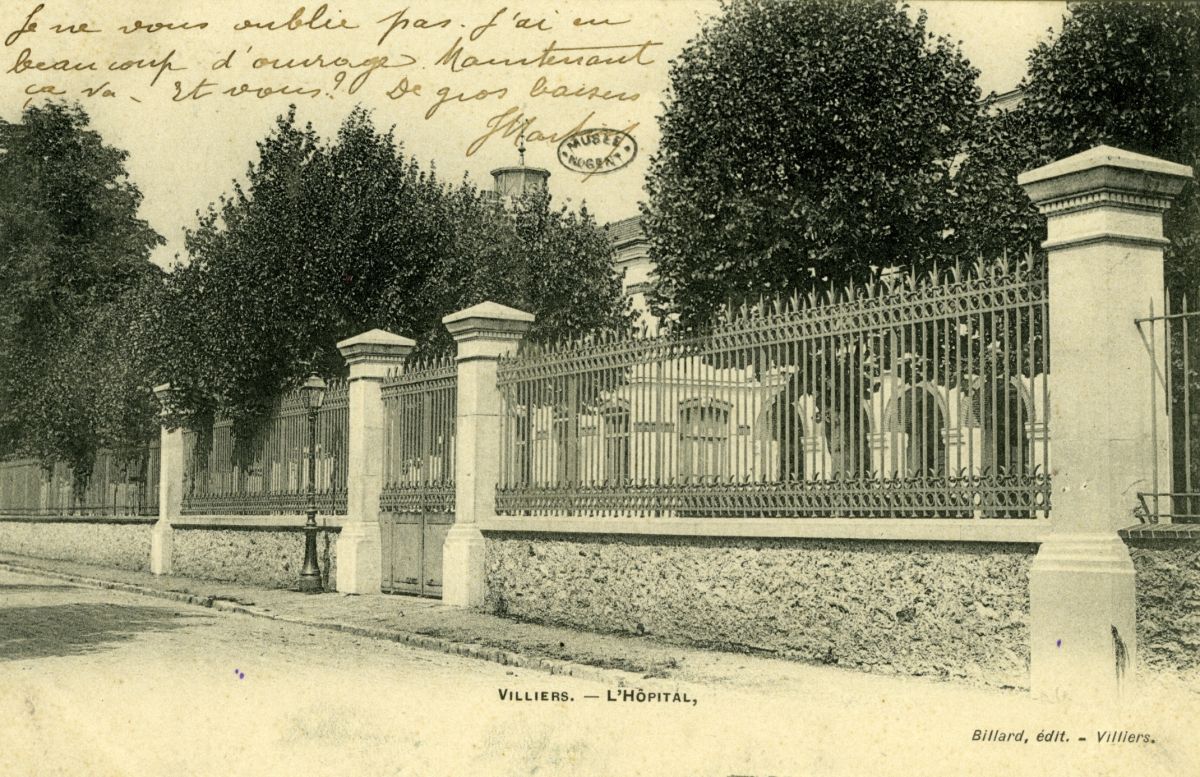 Je ne vous oublie pas. J'ai eu
beaucoup d'ouvrage. Maintenant
ça va. Et vous? De gros baisers
MUSÉE
NOGENT
VILLIERS. — L'HÔPITAL,
Billard, édit. - Villiers.